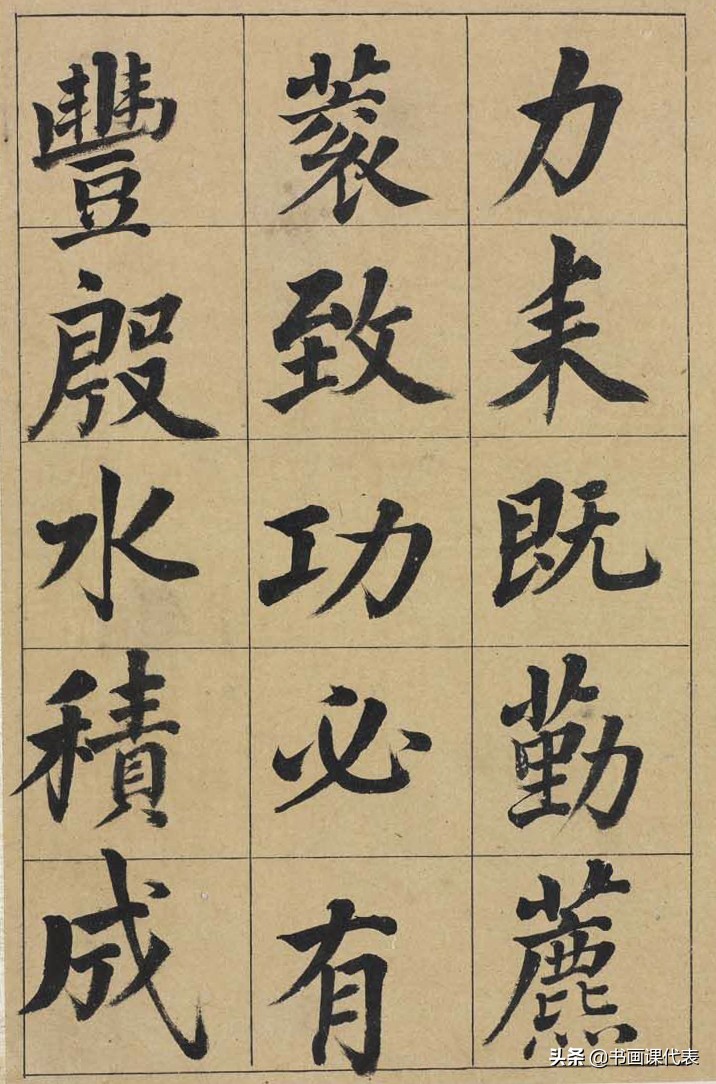 力耒既勤藨
蔉致功必有
豐殷水積成
头条 @书画课代表